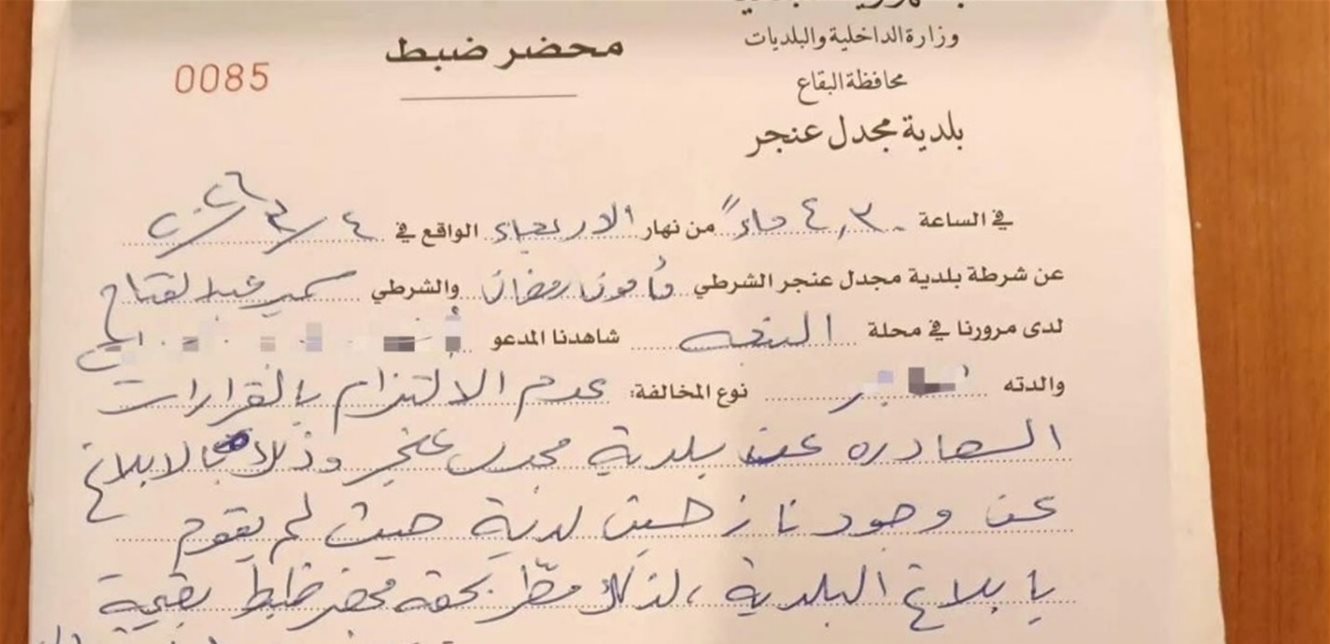 وزارة الداخلية والبلديات
محافظة البقاع
بلدية مجدل عنجر
محضر ضبط
0085
في الساعة ٤,٣٠ مساءً من نهار الاربعاء الواقع في ٤/٣/٢٠٢٦
عن شرطة بلدية مجدل عنجر الشرطي مأمون رمضان والشرطي سمير عبد الفتاح
لدى مرورنا في محلة شاهدنا المدعو
والدته نوع المخالفة: عدم الالتزام بالقرارات
الصادره عن بلدية مجدل عنجر وذلك بالابلاغ
عن وجود نازحين لدية حيث لم يقوم
بابلاغ البلدية، لذلك سطر بحقه محضر ضبط بقيمة